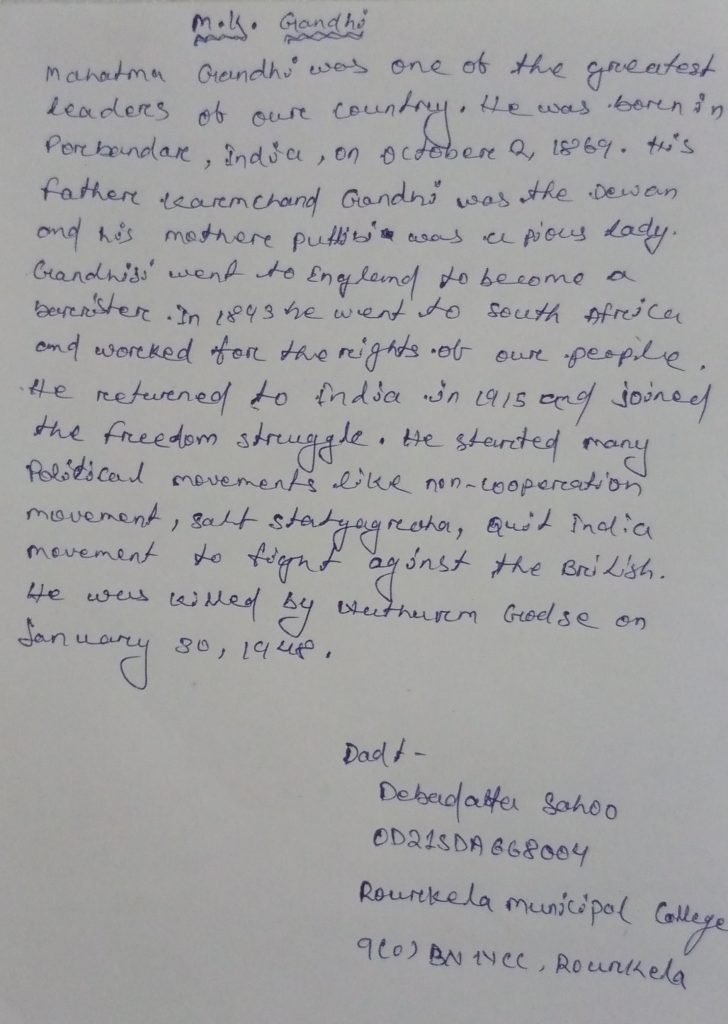 M.K. Gandhi
Mahatma Gandhi was one of the greatest
leaders of oure country. He was boren in
Porebandare, India, on Octobere 2, 1869. His
fathere Karemchand Gandhi was the Dewan
and his mothere putlibi was a pious lady.
Gandhiji went to England to become a
barerister. In 1893 he went to South Africa
and woreked fore the reights of oure people.
He retwrened to India in 1915 and joined
the freedom struggle. He starcted many
Political movements like non-cooperation
movement, salt statyagreaha, Quit India
movement to fight aginst the British.
He was killed by Nathuram Godse on
January 30, 1948.
Dadt -
Debadatta Sahoo
OD21SDA668004
Rourekela municipal College
9(O) BN NCC, Rourkela